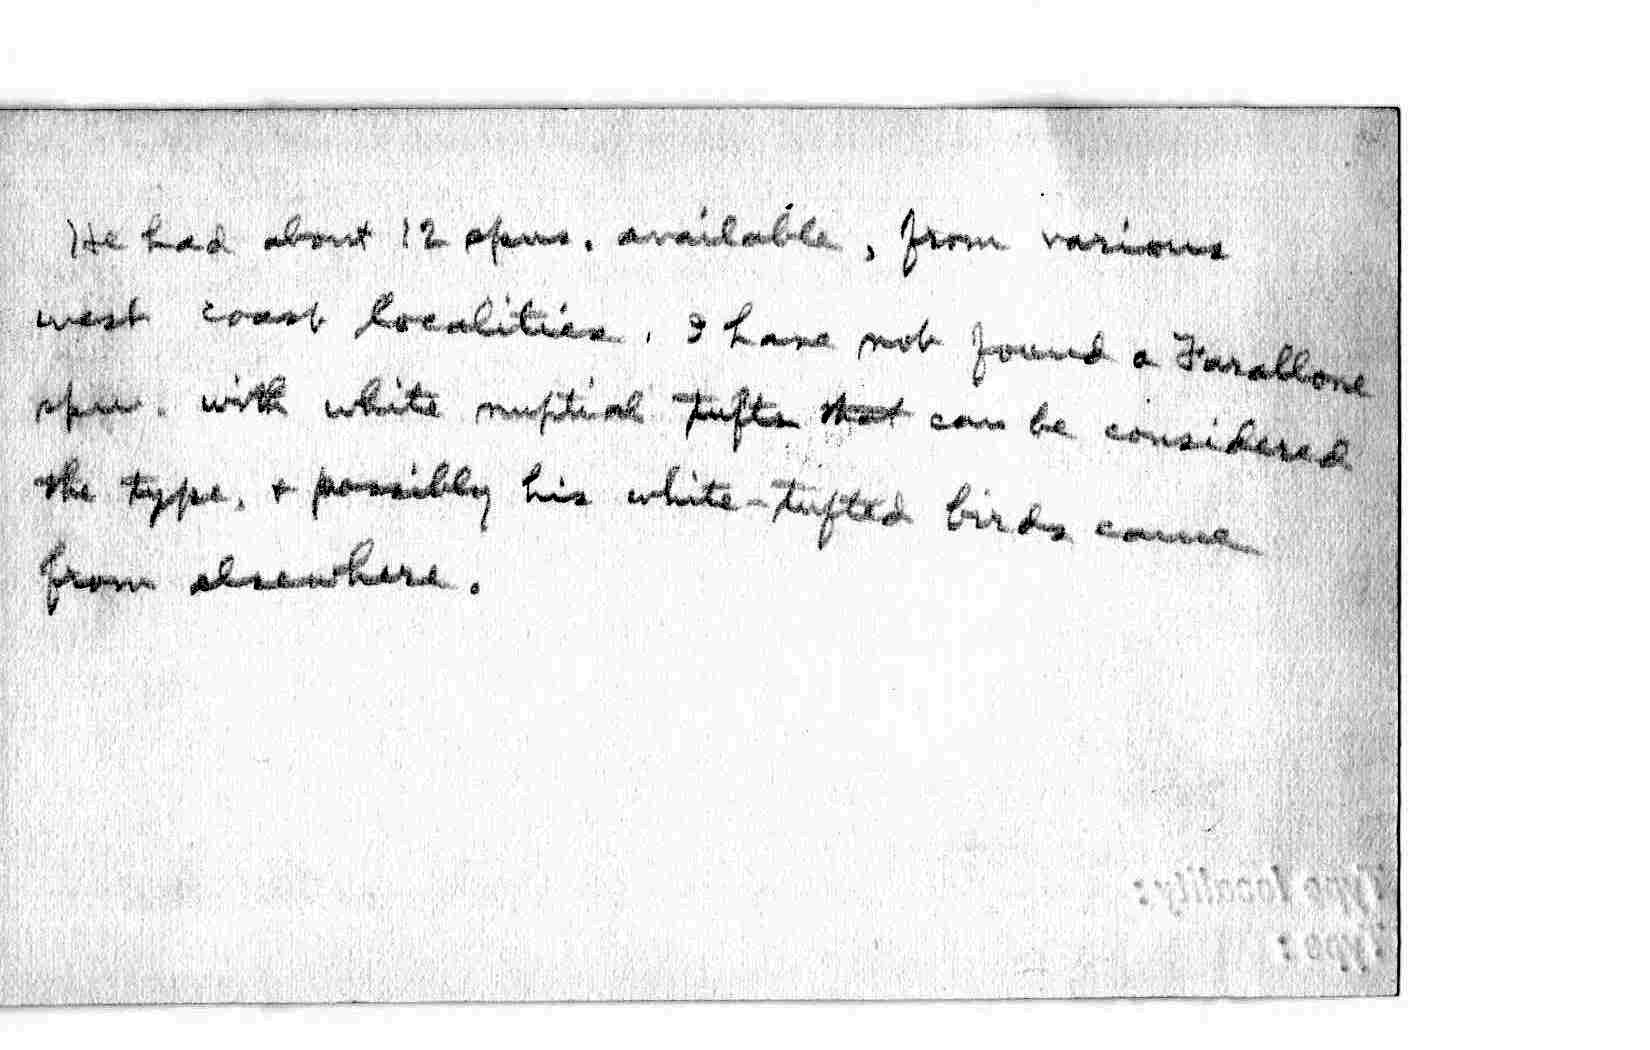 He had about 12 spms. available, from various
west coast localities. I have not found a Farallone
spm. with white nuptial tufts that can be considered
the type, & possibly his white-tufted birds came
from elsewhere.
Type locality:
Type: